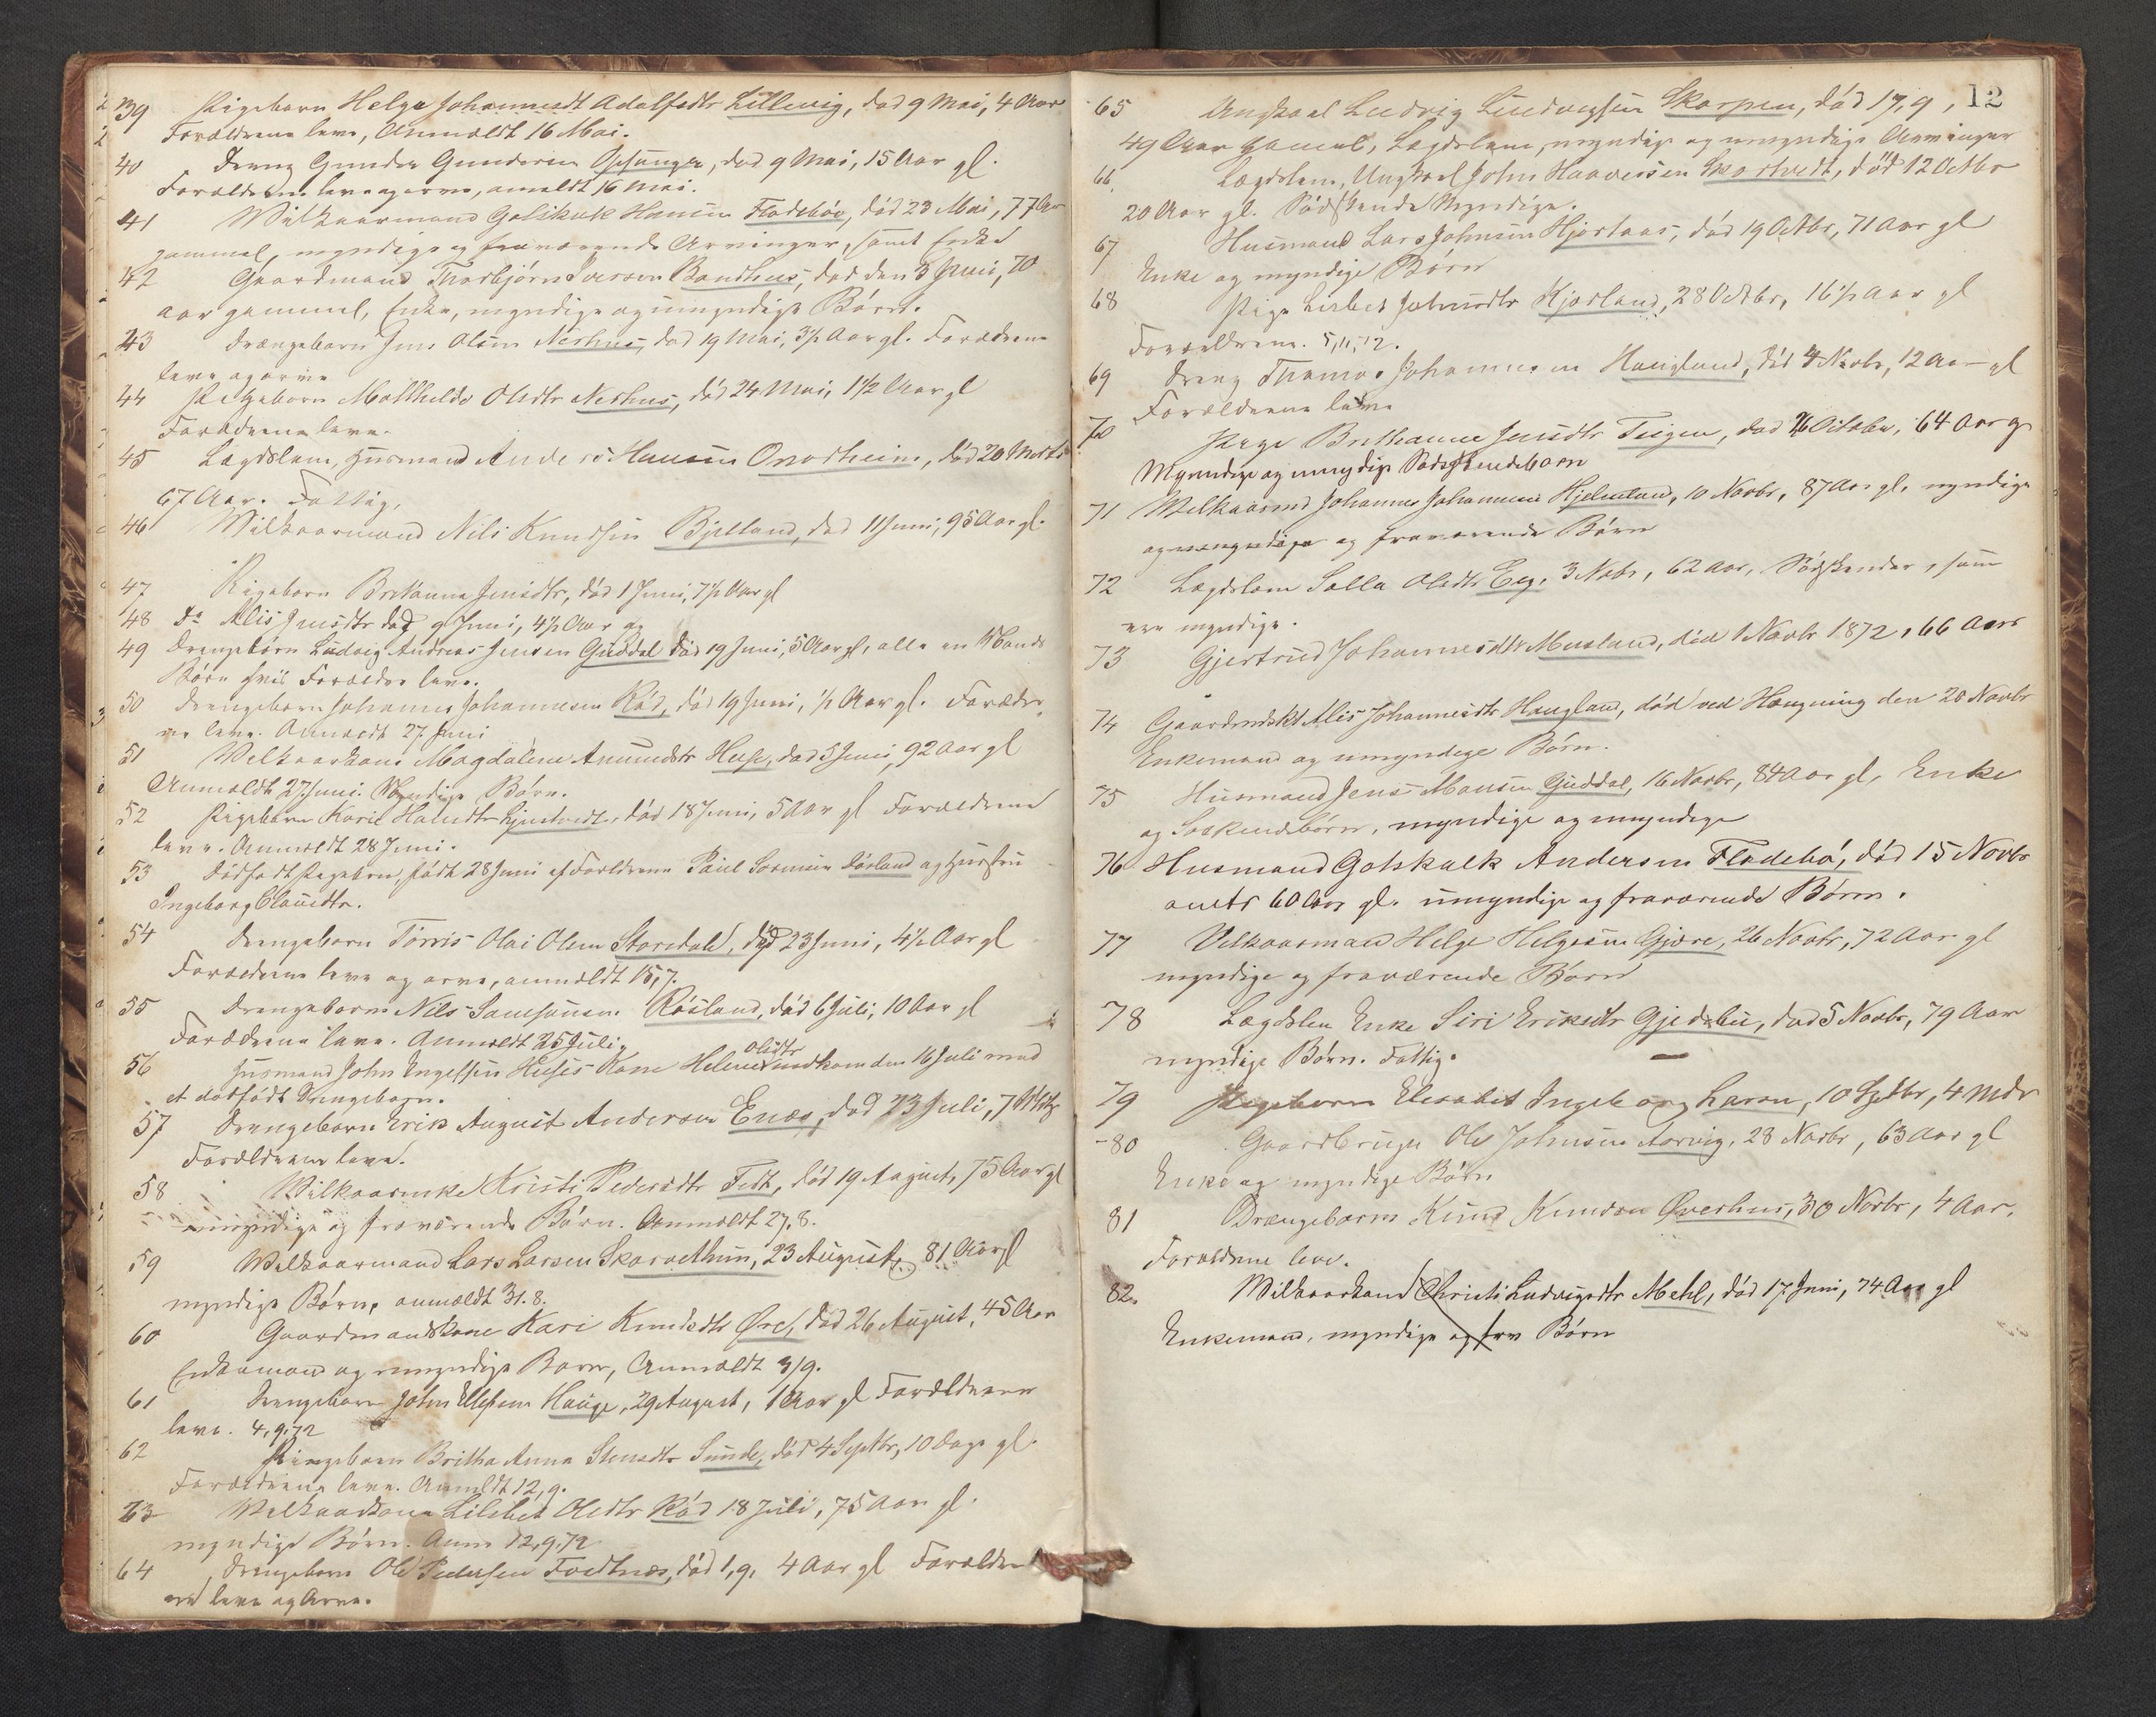 39 Pigebarn Helga Johannesdt Adolfsdtr Lillevig, død 9 Mai, 4 Aar
Forældrene leve, Anmeldt 16 Mai.
40 Dreng Gunder Gundersen Opsanger, død 9 Mai, 15 Aar gl.
Forældrene leve og arve, anmeldt 16 Mai.
41 Vilkaarmand Gotskalk Hansen Flodebøe, død 23 Mai, 77 Aar
gammel, myndige og fraværende Arvinger, samt Enke
42 Gaardmand Thorbjørn Iversen Bondhus, død den 3 Juni, 70
aar gammel, Enke, myndige og umyndige Børn.
43 Drængebarn Jens Olsen Nerhus, død 19 Mai, 3½ Aar gl. Forældrene
leve og arve
44 Pigebarn Mallhilde Olsdtr Nerhus, død 24 Mai, 1½ Aar gl
Forældrene leve.
45 Lægdslem, Husmand Anders Hansen Omvikeim, død 20 Marts
67 Aar. Fattig.
46 Vilkaarmand Nils Knudsen Bjelland, død 11 Juni, 95 Aar gl.
47 Pigebarn Britanna Jensdtr, død 1 Juni, 7½ Aar gl
48 Do Alis Jensdtr død 9 Juni, 4½ Aar og
49 Drengebørn Ludvig Andreas Jensen Guddal død 19 Juni, 5 Aar gl, alle en Mands
Børn hvis Forældre leve.
50 Drengebarn Johannes Johannesen Rød, død 19 Juni, ½ Aar gl. Forældre
ne leve. Anmeldt 27 Juni
51 Velkaarkone Magdalena Amundsdtr Huse, død 5 Juni, 92 Aar gl
Anmeldt 27 Juni. Myndige Børn.
52 Pigebarn Kari Halvdtr, død 18 Juni, 5 Aar gl Forældrene
leve. Anmeldt 28 Juni.
53 Dødfødt Pigebarn, født 28 Juni af Forældrene Paul Sørensen Dørland og Hustru
Ingeborg Olausdtr.
54 Drengebarn Tørris Olai Olsen Storedal, død 23 Juni, 4½ Aar gl
Forældrene leve og arve, anmeldt 15,7.
55 Drengebarn Nils Samsonsen Røsland, død 6 Juli, 10 Aar gl
Forældrene leve. Anmeldt 25 Juli.
56 Husmand John Engelsen Huses Kone Helene Olsdtr nedkom den 16 Juli med
et dødfødt Drengebarn.
57 Drengebarn Erik August Andersen Enæs, død 23 Juli, 7 Mdr
Forældrene leve.
58 Vilkaarenke Kristi Pedersdtr Tedt, død 19 August, 75 Aar gl
myndige og fraværende Børn. Anmeldt 27.8.
59 Velkaarmand Lars Larsen Skarvethun, 23 August, 81 Aar gl
myndige Børn, anmeldt 31.8.
60 Gaardmandskone Kari Knudsdtr Øre, død 26 August, 45 Aar
Enkemand og umyndige Børn, Anmeldt 3/9.
61 Drengebarn John Ellefsen Hauge, 29 August, 1 Aar gl Forældrene
leve. 4,9,72
62 Pigebarn Britha Anna Stensdtr Sunde, død 4 Septbr, 10 Dage gl.
Forældrene leve. Anmeldt 12,9.
63 Velkaarkone Lisbet Olsdtr Rød 18 Juli, 75 Aar gl.
myndige Børn. Anm 12,9,72
64 Drengebarn Ole Pedersen Fodtnæs, død 1,9, 4 Aar gl Forældre
ne leve og Arve.
12
65 Ungkarl Ludvig Ludvigsen Skorpen, død 17,9,
49 Aar Gamel, Lægdslem, myndige og umyndige Arvinger
66 Lægdslem, Ungkarl John Haaversen Skartvedt, død 12 Octbr
20 Aar gl. Sødskende Myndige.
67 Husmand Lars Johnsen Hjortaas, død 19 Octbr, 71 Aar gl
Enke og myndige Børn
68 Pige Lisbet Johnsdtr Kjørland, 28 Octbr, 16½ Aar gl
Forældrene. 5,11,72.
69 Dreng Thomas Johannesen Haugland, død 4 Novbr, 12 Aar gl
Forældrene leve
70 Pige Brithanna Jensdtr Teigen, død 26 October, 64 Aar gl
Myndige og umyndige Sødskendebørn
71 Velkaarmd Johannes Johannesen Hjelmeland, 10 Novbr, 87 Aar gl, myndige
og umyndige og fraværende Børn
72 Lægdslem Salla Olsdtr Eeg, 3 Nobr, 62 Aar, Sødskender, som
ere myndige.
73 Gjertrud Johannesdtr Musland, død 1 Novbr 1872, 66 Aar
74 Gaardmdskt Alis Johannesdtr Haugland, død ved Hængning den 20 Novbr
Enkemand og umyndige Børn.
75 Husmand Jens Monsen Guddal, 16 Novbr, 84 Aar gl, Enke
og Soskendebørn, myndige og umyndige
76 Husmand Gotskalk Andersen Flodebø, død 15 Novbr
anets 60 Aar gl. umyndige og fraværende Børn.
77 Velkaarmand Helge Helgesen Gjøre, 26 Novbr, 72 Aar gl
myndige og fraværende Børn
78 Lægdslem Enke Siri Eriksdtr Gjedsbu, død 5 Novbr, 79 Aar
myndige Børn. Fattig.
79 Pigebarn Elisabet Ingeborg Larsn, 10 Septbr, 4 Mdr
80 Gaardbruger Ole Johnsen Aarvig, 23 Novbr, 63 Aar gl
Enke og myndige Børn
81 Drængebarn Knud Knudsen Øverhus, 30 Novbr, 4 Aar.
Forældrene leve.
82. Vilkaarkone Christi Ludvigsdtr Mehl, død 17 Juni, 74 Aar gl
Enkemand, myndige og frv Børn